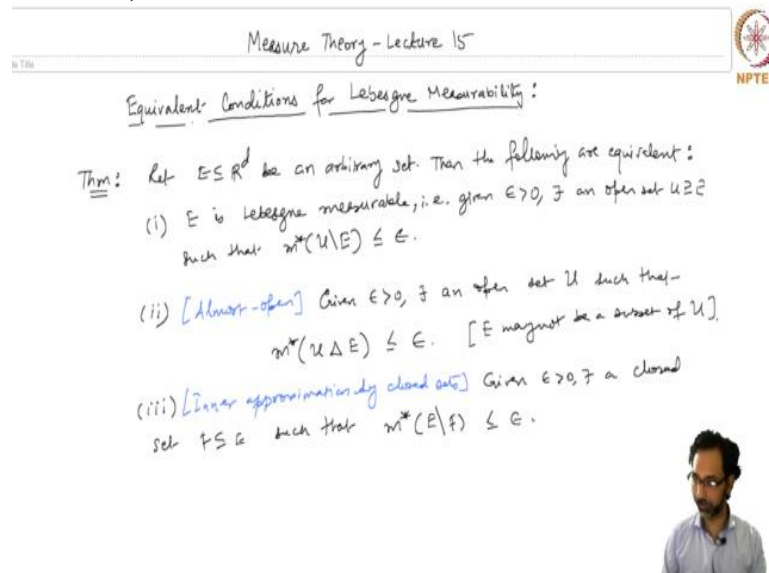 Measure Theory - Lecture 15
NPTE
Equivalent Conditions for Lebesgue Measurability:
Thm: Let E ⊆ R^d be an arbitrary set. Then the following are equivalent:
(i) E is Lebesgue measurable, i.e. given ε>0, ∃ an open set U ⊇ E
such that m*(U\E) ≤ ε.
(ii) [Almost-open] Given ε>0, ∃ an open set U such that
m*(U Δ E) ≤ ε. [E may not be a subset of U].
(iii) [Inner approximation by closed sets] Given ε>0, ∃ a closed
set F ⊆ E such that m*(E\F) ≤ ε.